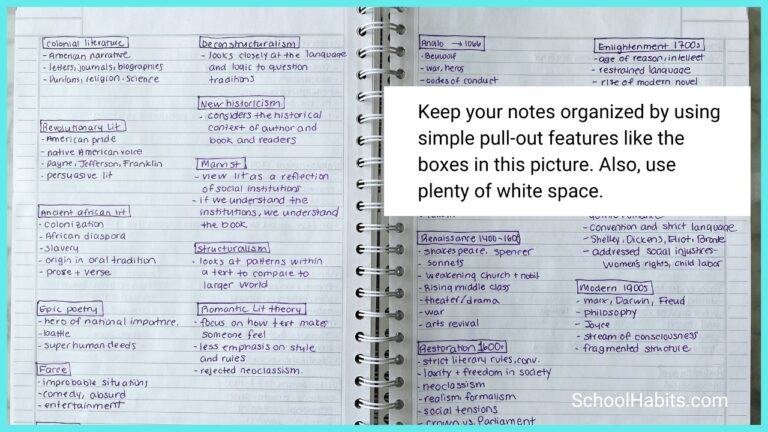 Colonial literature
- American narrative
- letters, journals, biographies
- Puritans, religion, science
Revolutionary Lit
- American pride
- native American voice
- payne, Jefferson, Franklin
- persuasive lit
Ancient african lit
- colonization
- African diaspora
- slavery
- origin in oral tradition
- prose + verse
Epic poetry
- hero of national importnce.
- battle
- super human deeds
Farce
- improbable situations
- comedy, absurd
- entertainment
Deconstructuralism
- looks closely at the language
and logic to question
traditions
New historicism
- considers the historical
context of author and
book and readers
Marxist
- view lit as a reflection
of social institutions
- if we understand the
institutions, we understand
the book
Structuralism
- looks at patterns within
a text to compare to
larger world
Romantic Lit theory
- focus on how text makes
someone feel
- less emphasis on style
and rules
- rejected neoclassism.
Anglo → 1066
- Beowulf
- war, heros
- codes of conduct
Keep your notes organized by using
simple pull-out features like the
boxes in this picture. Also, use
plenty of white space.
Renaissance 1400-1600
- shakespeare, spencer
- sonnets
- weakening church + nobil
- Rising middle class
- theater/drama
- war
- arts revival
Restoration 1600s
- strict literary rules, conv.
- laxity + freedom in society
- neoclassism
- realism formalism
- social tensions
- crown vs. Parliament
Enlightenment 1700s
- age of reason, intellect
- restrained language
- rise of modern novel
- Convention and strict language
- Shelley, Dickens, Eliot, Bronte
- addressed social injustices-
women's rights, child labor
Modern 1900s
- marx, Darwin, Freud
- philosophy
- Joyce
- stream of consciousness
- fragmented structure
SchoolHabits.com